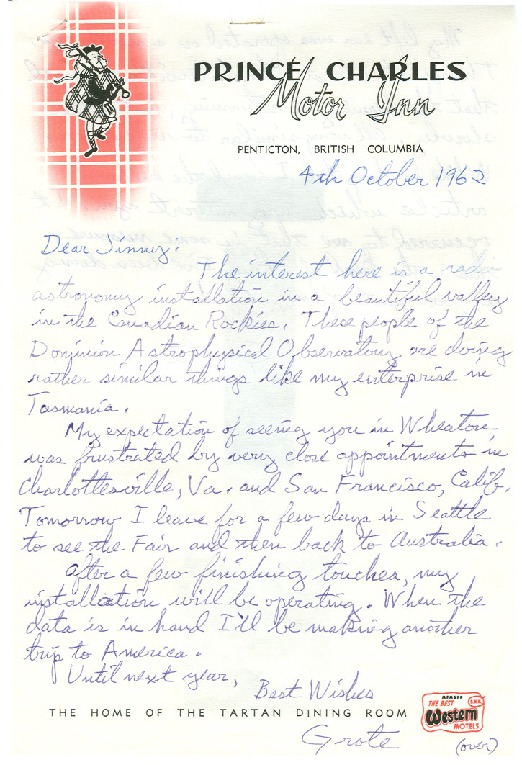 PRINCE CHARLES
Motor Inn
PENTICTON, BRITISH COLUMBIA
4th October 1962
Dear Jinny:
The interest here is a radio
astronomy installation in a beautiful valley
in the Canadian Rockies. These people of the
Dominion Astrophysical Observatory are doing
rather similar things like my enterprise in
Tasmania.
My expectation of seeing you in Wheaton
was frustrated by very close appointments in
Charlottesville, Va. and San Francisco, Calif.
Tomorrow I leave for a few days in Seattle
to see the Fair and then back to Australia.
After a few finishing touches, my
installation will be operating. When the
data is in hand I'll be making another
trip to America.
Until next year,
Best Wishes
THE HOME OF THE TARTAN DINING ROOM
THE BEST
Western
MOTELS
Grote
(over)